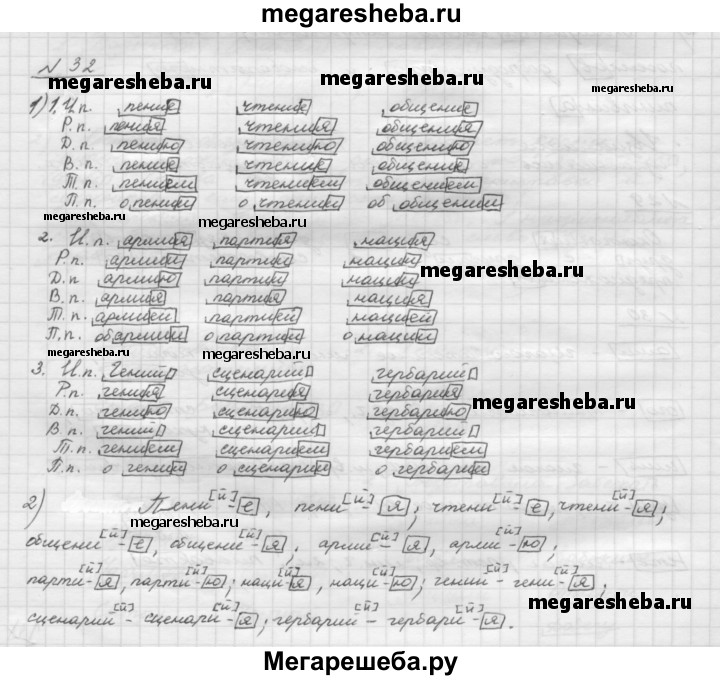 megaresheba.ru
N 32
megaresheba.ru megaresheba.ru megaresheba.ru
1) 1. И.п. пение чтение общение
Р.п. пения чтения общения
Д.п. пению чтению общению
В.п. пение чтение общение
Т.п. пением чтением общением
П.п. о пении о чтении об общении
megaresheba.ru megaresheba.ru
2. И.п. армия партия нация
Р.п. армии партии нации
megaresheba.ru
Д.п. армию партии нации
В.п. армия партия нация
Т.п. армией партией нацией
П.п. об армии о партии о нации
megaresheba.ru megaresheba.ru
3. И.п. Гений сценарий гербарий
Р.п. гения сценария гербария
megaresheba.ru
Д.п. гению сценарию гербарию
В.п. гений сценарий гербарий
Т.п. гением сценарием гербарием
П.п. о гении о сценарии о гербарии
2) Пени[й]-е, пени[й]-я; чтени[й]-е, чтени[й]-я;
megaresheba.ru
общени[й]-е, общени[й]-я; арми[й]-я, арми[й]-ю;
парти[й]-я, парти[й]-ю; наци[й]-я, наци[й]-ю; гений[й]-гени[й]-я;
megaresheba.ru
сценарий[й]-сценари[й]-я; гербарий[й]-гербари[й]-я.
Мегарешеба.ру